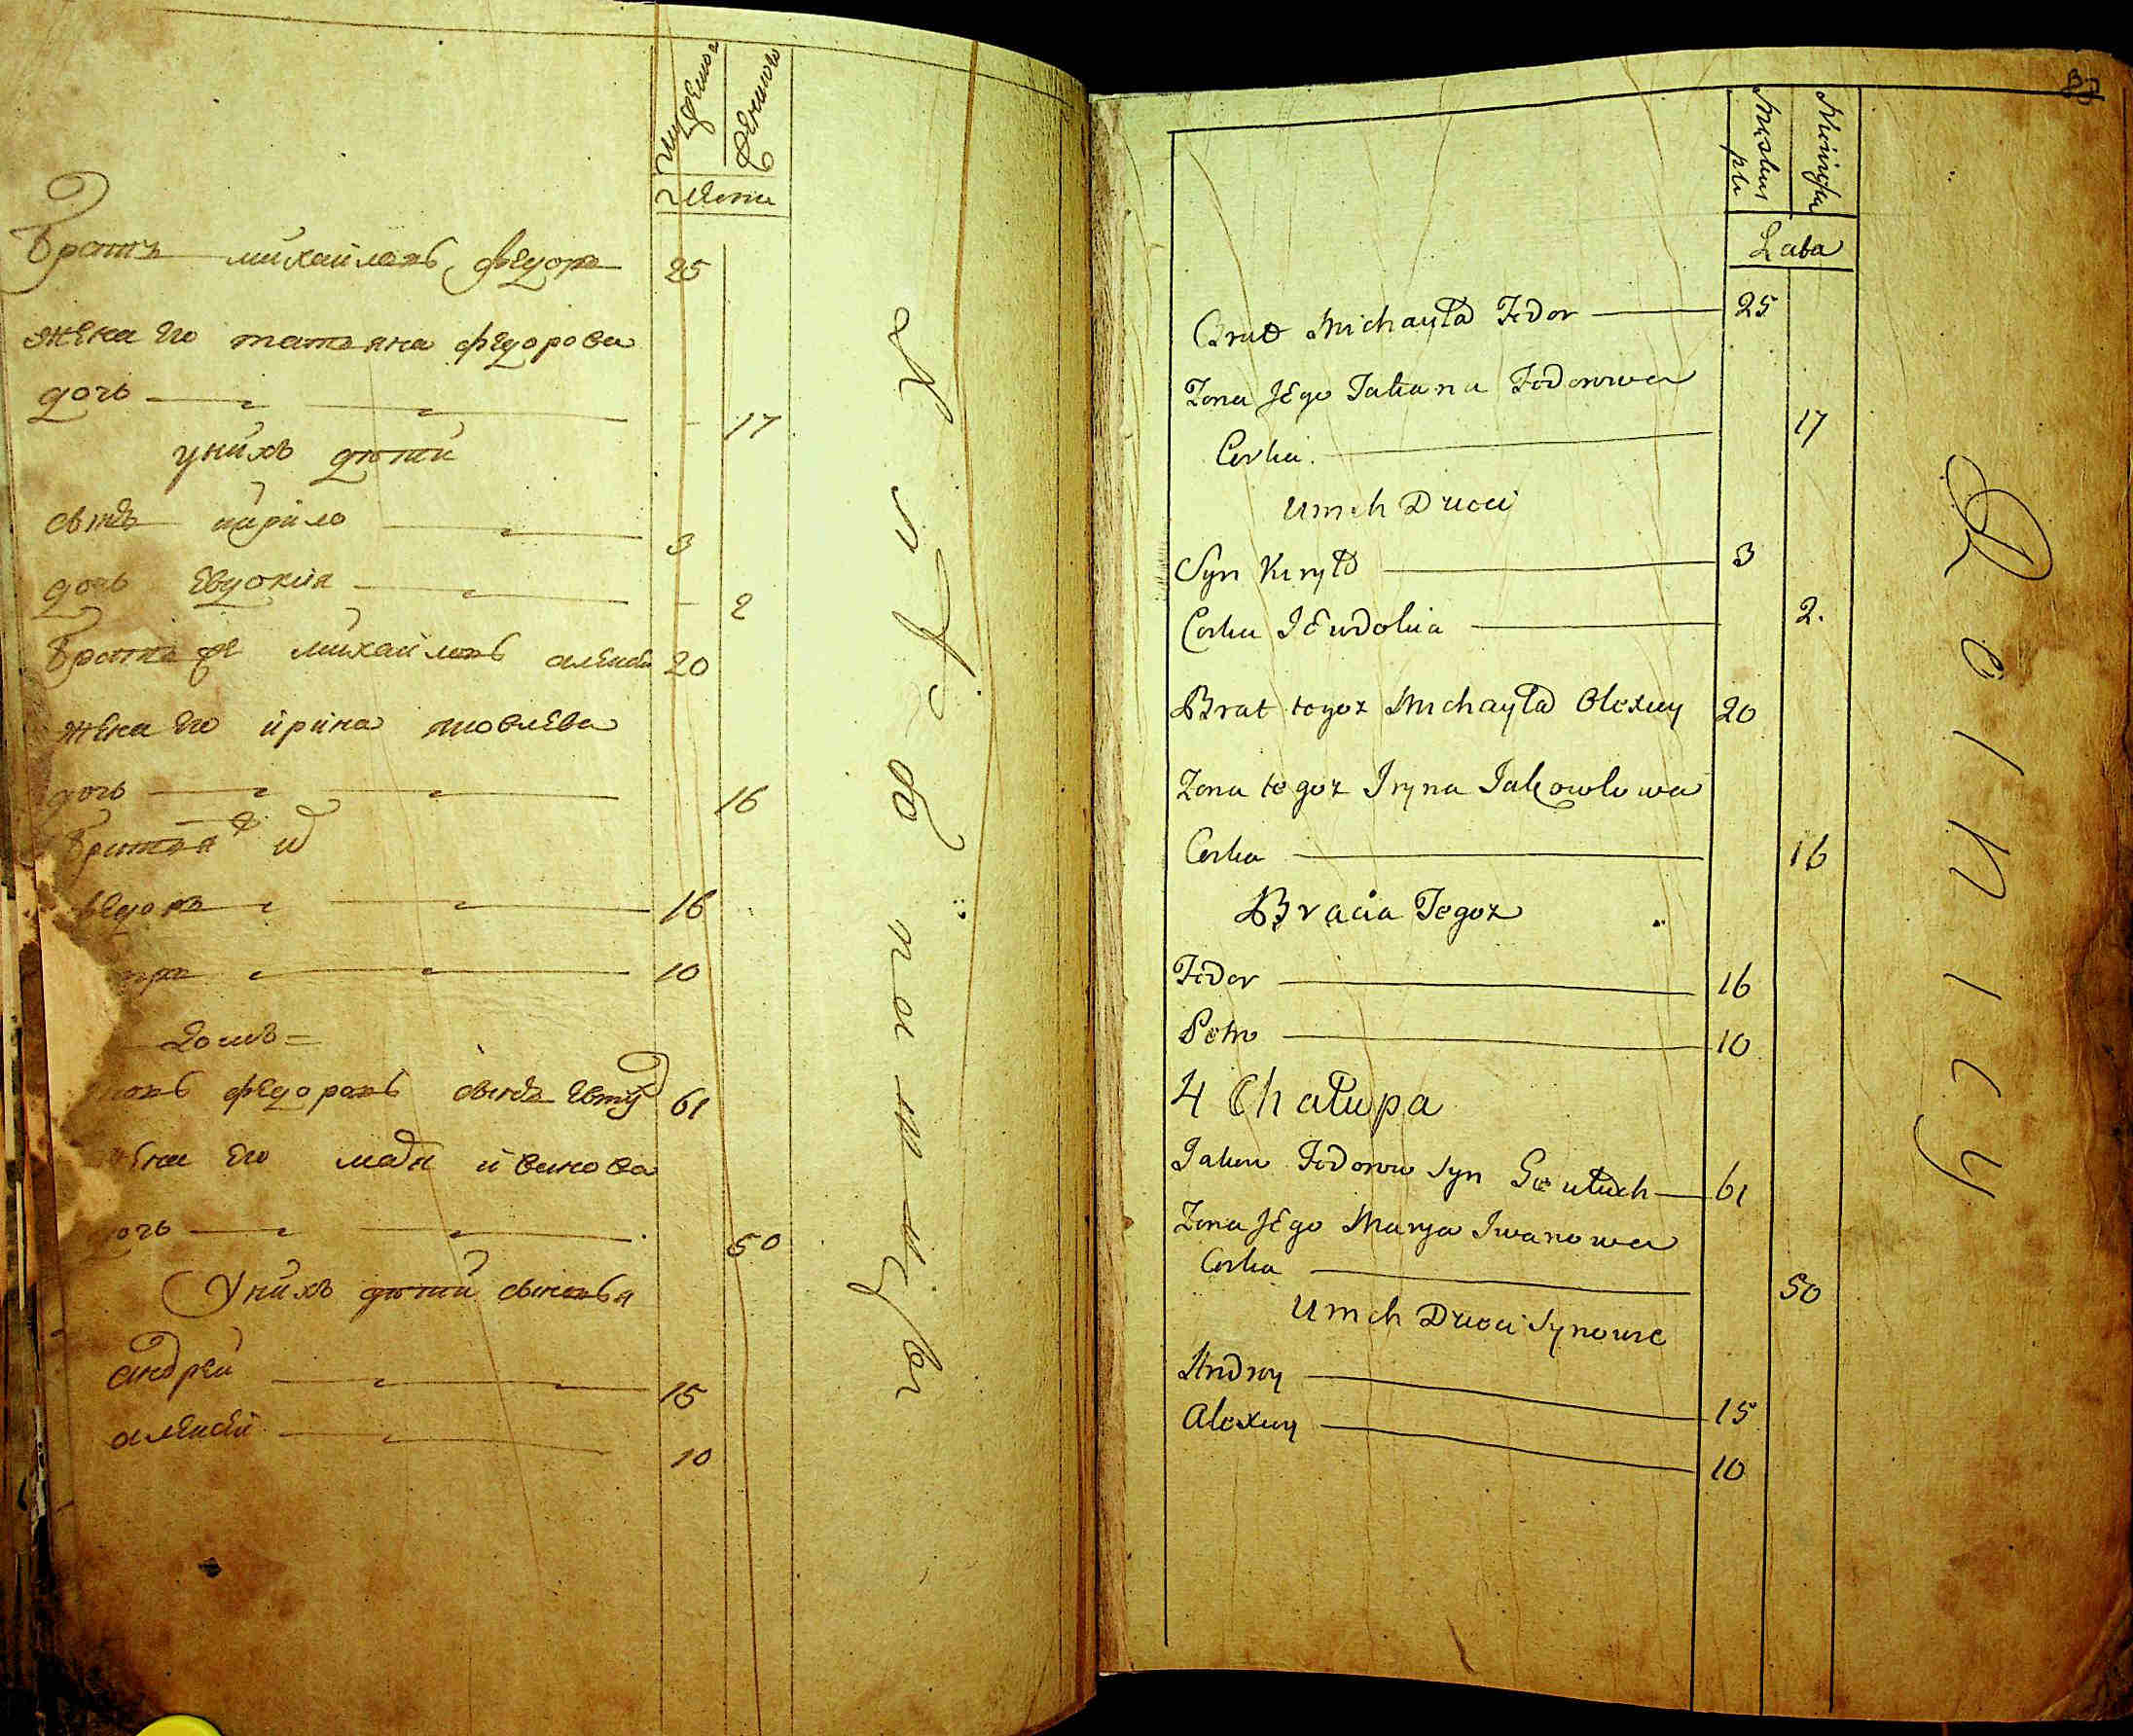 Мужеска
Женска
Лета
Братъ михайловъ федоръ 25
жена его татьяна федорова
дочь 17
у нихъ дѣти
сынъ кирило 3
дочь евдокия 2
Братъ михайловъ алексей 20
жена его ирина яковлева
дочь 16
Братья
федоръ 16
10
федоровъ сынъ 61
его мария иванова
дочь 50
У нихъ дѣти сыновья
андрей 15
алексей 10
Lata
Brat Michayła Fedor 25
Zona Jego Tatiana Fedorowa
Corka 17
U nich Dzieci
Syn Kiryło 3
Corka Jewdokia 2.
Brat tegoz Michayła Olexiey 20
Zona tegoz Iryna Jakowlowa
Corka 16
Bracia Tegoz
Fedor 16
Petro 10
4 Chałupa
Jakow Fedorow Syn 61
Zona Jego Marya Iwanowa
Corka 50
U nich Dzieci Synowie
Andrey 15
Alexiey 10
Rolnicy